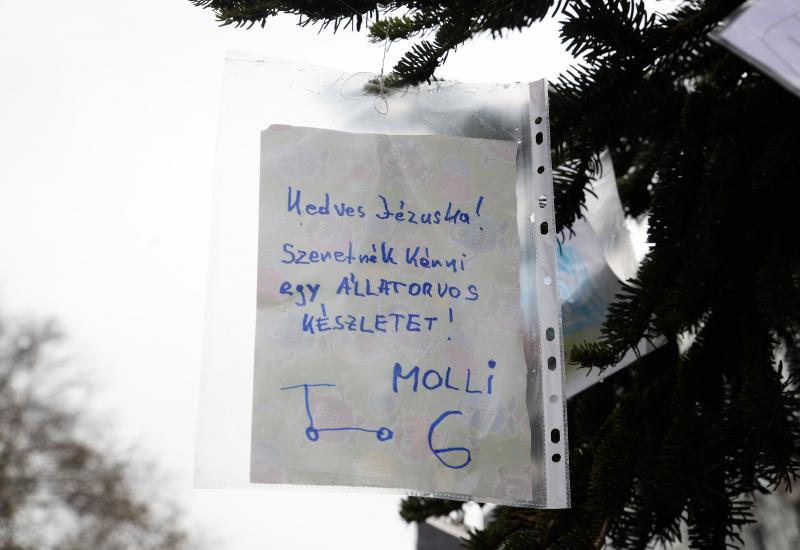 Kedves Jézuska!
Szeretnék kérni
egy ÁLLATORVOS
KÉSZLETET!
MOLLi
6